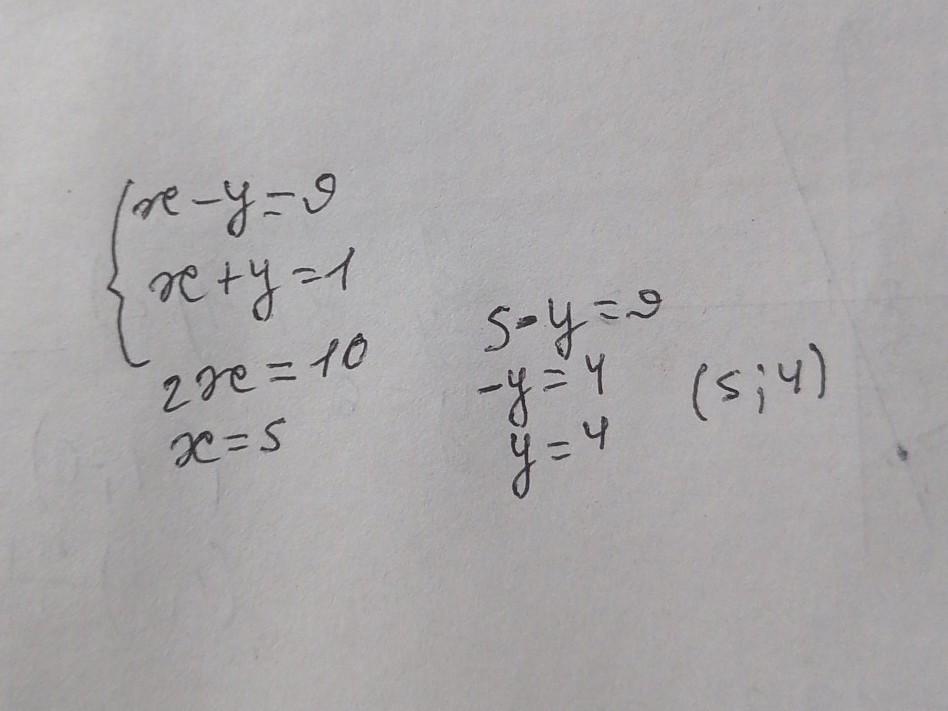 x-y=9
x+y=1
2x=10
x=5
5-y=9
-y=4
y=4
(5;4)